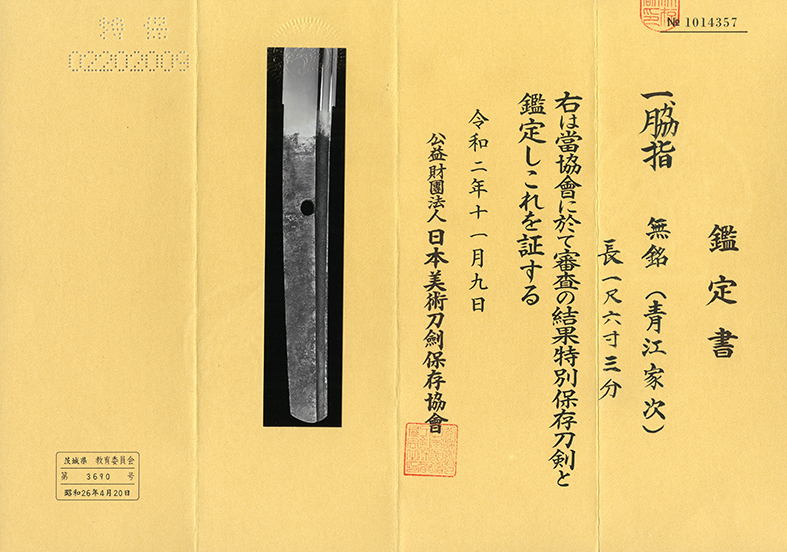 № 1014357
鑑定書
一、脇指 無銘(青江家次)
長一尺六寸三分
右は當協會に於て審査の結果特別保存刀剣と
鑑定しこれを証する
令和二年十一月九日
公益財團法人 日本美術刀劍保存協會
特保
02202009
茨城県 教育委員会
第 3690 号
昭和26年4月20日